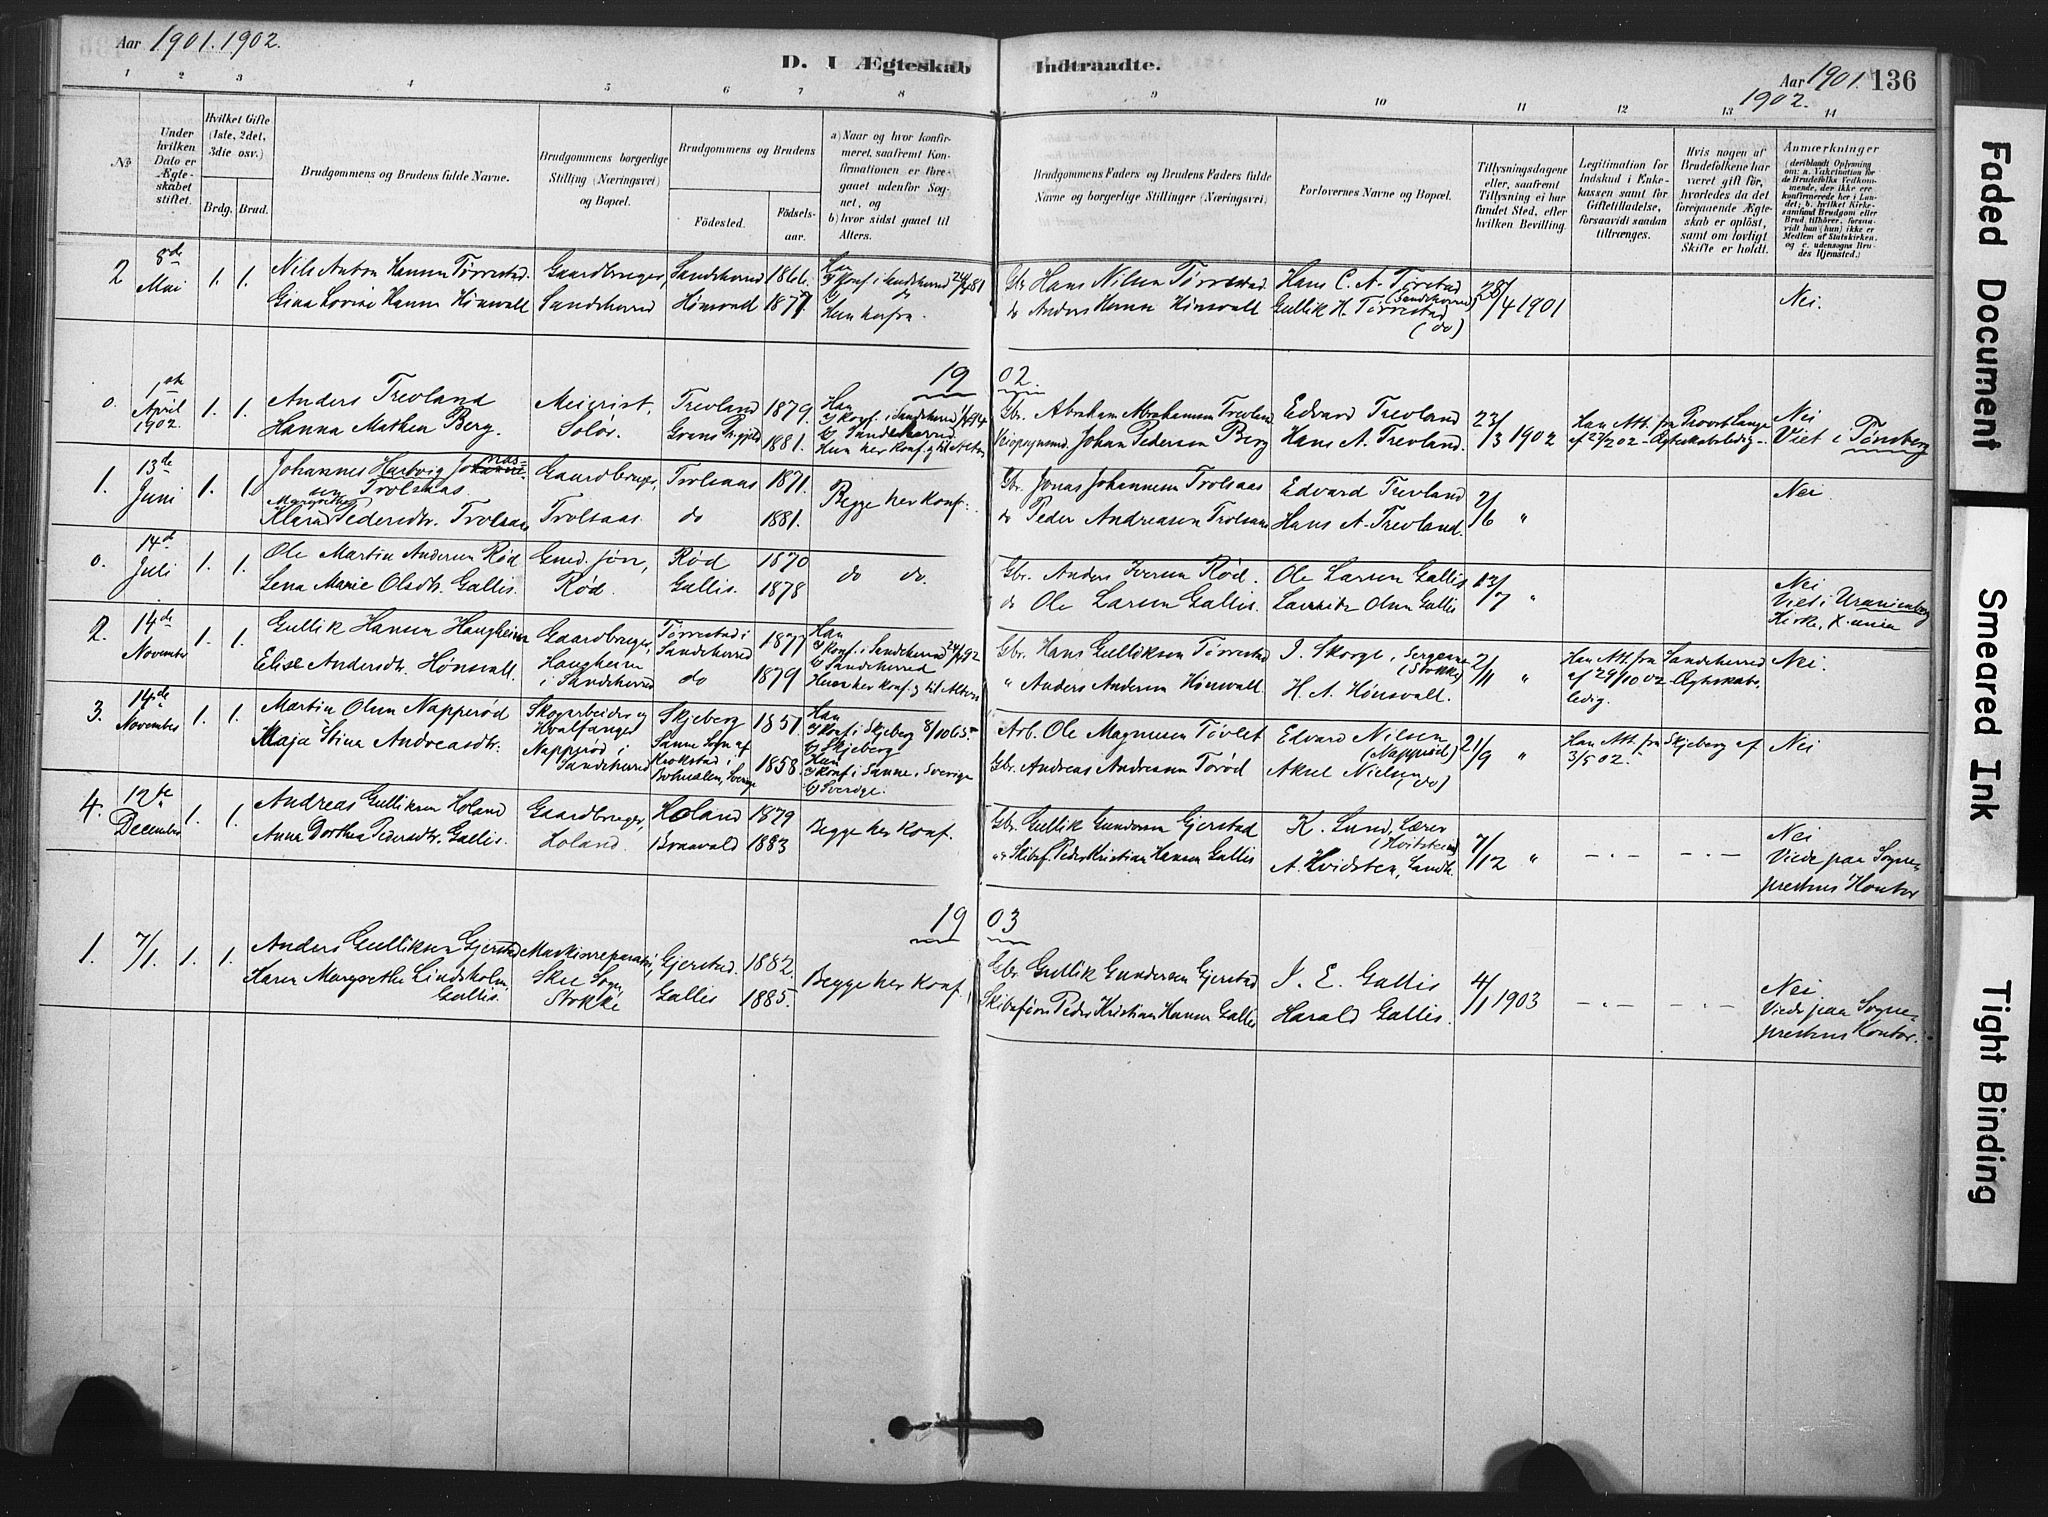 Aar 1901. 1902.
D. I Ægteskab Indtraadte.
Aar 1901. 136
1902.
1 2 3 4 5 6 7 8 9 10 11 12 13 14
No
Under hvilken Dato er Ægteskabet stiftet.
Hvilket Gifte (1ste, 2det, 3die osv.)
Brdg. Brud.
Brudgommens og Brudens fulde Navne.
Brudgommens borgerlige Stilling (Næringsvei) og Bopæl.
Brudgommens og Brudens
Fødested. Fødselsaar.
a) Naar og hvor konfirmeret, saafremt Konfirmationen er foregaaet udenfor Sognet, og
b) hvor sidst gaaet til Alters.
Brudgommens Faders og Brudens Faders fulde Navne og borgerlige Stillinger (Næringsvei)
Forlovernes Navne og Bopæl.
Tillysningsdagene eller, saafremt Tillysning ei har fundet Sted, efter hvilken Bevilling.
Legitimation for Indskud i Enkekassen samt for Giftetilladelse, forsaavidt saadan tiltrænges.
Hvis nogen af Brudefolkene har været gift før, hvorledes da det foregaaende Ægteskab er opløst, samt om lovligt Skifte er holdt.
Anmærkninger
(deriblandt Oplysning om: a. Vakcination for de Brudefolks Vedkommende, der ikke ere konfirmerede her i Landet; b. hvilket Kirkesamfund Brudgom eller Brud tilhører, forsaavidt han (hun) ikke er Medlem af Statskirken, og c. udensogns Brudes Hjemsted.)
2 8de Mai 1. 1.
Nils Anton Hansen Tørrestad
Gina Lovise Hansen Hønsvall
Gaardbruger, Sandeherred
Sandeherred 1866.
Hønsvald 1877
Han
a) Konf. i Sandeherred 24/4 81
b) do
Hun herfra.
Gbr. Hans Nilsen Tørrestad
do Anders Hansen Hønsvall
Hans C. A. Tørestad (Sandeherred)
Gullik H. Tørrestad (do)
28/4 1901
Nei.
1902.
0. 1ste April 1902 1. 1.
Anders Trevland
Hanna Mathea Berg.
Meierist, Solos.
Trevland 1879.
Grans Prgjeld 1881.
Han
a) Konf. i Sandeherred
b) Sandeherred
Hun her Konf. og til Alters
Gbr. Abraham Abrahamsen Trevland
Johan Pedersen Berg
Edvard Trevland
Hans A. Trevland.
23/3 1902
Han Att. fra Provst Lange
af 27/2 02 - Ægteskabsledig -
Nei
Viet i Tønsberg
1. 13de Juni 1. 1.
Johannes Hartvig Jonassen Trolsaas
Margrethe
Klara Pedersdtr. Trolsaas
Gaardbruger, Trolsaas.
Trolsaas 1871.
do 1881.
Begge her Konf.
Gbr. Jonas Johannesen Trolsaas
do Peder Andreasen Trolsaas
Edvard Trevland
Hans A. Trevland.
2/6 "
Nei.
0. 14de Juli 1. 1.
Ole Martin Andersen Rød
Lena Marie Olsdtr. Gallis.
Rød.
Rød 1870
Gallis. 1878
do do.
Gbr. Anders Iversen Rød.
do Ole Larsen Gallis.
Ole Larsen Gallis
Lauritz Olsen Gallis
13/7 "
Nei
Viet i Uranienborg
Kirke, X.ania
2. 14de November 1. 1.
Gullik Hansen Haugheim
Elise Andersdtr. Hønsvall.
Gaardbruger, Haugheim i Sandeherred
Tørrestad i Sandeherred 1877
do 1879
Han
a) Konf. i Sandeherred 24/4 92
b) Sandeherred
Hun her Konf. og til Alters
Gbr. Hans Gulliksen Tørrestad
" Anders Andersen Hønsvall.
J. Skorge, Sergeant (Stokke)
H. A. Hønsvall.
2/11 "
Han Att. fra Sandeherred
af 29/10 02 Ægteskabsledig.
Nei.
3. 14de November 1. 1.
Martin Olsen Napperød
Maja Stina Andreasdtr.
Skogarbeider og Hvalfanger
Napperød i Sandeherred
Skjeberg 1851.
Sanne Sogn af Krokstad i Bohuslen, Sverige 1858.
Han
a) Konf. i Skjeberg 8/10 65
b) Skjeberg.
Hun
a) Konf. i Sanne, Sverige
b) Sverige.
Arb. Ole Magnusen Tøvlet
Gbr. Andreas Andreasen Torød
Edvard Nilsen (Napperød)
Aksel Nielsen (do)
21/9 "
Han Att. fra Skjeberg af
3/5 02.
Nei
4. 12te December 1. 1.
Andreas Gulliksen Holand
Anna Dorthea Pedersdtr. Gallis.
Gaardbruger, Holand.
Holand 1879
Braavold 1883
Begge her Konf.
Gbr. Gullik Gundersen Gjerstad
Skibsf. Peder Kristian Hansen Gallis
K. Lund, Lærer (Hvitsten)
A. Hvidsten, Sandh.
7/12 "
Nei
Viede paa Sogneprestens Kontor
1903
1. 7/1. 1. 1.
Anders Gulliksen Gjerstad
Karen Margrethe Lindholm, Gallis.
Maskinreparatør,
Skee Sogn,
Stokke
Gjerstad. 1882.
Gallis 1885.
Begge her Konf.
Gbr. Gullik Gundersen Gjerstad
Skibsfører Peder Kristian Hansen Gallis
J. E. Gallis
Harald Gallis.
4/1 1903
Nei
Viede paa Sogneprestens Kontor.
Faded Document
Smeared Ink
Tight Binding